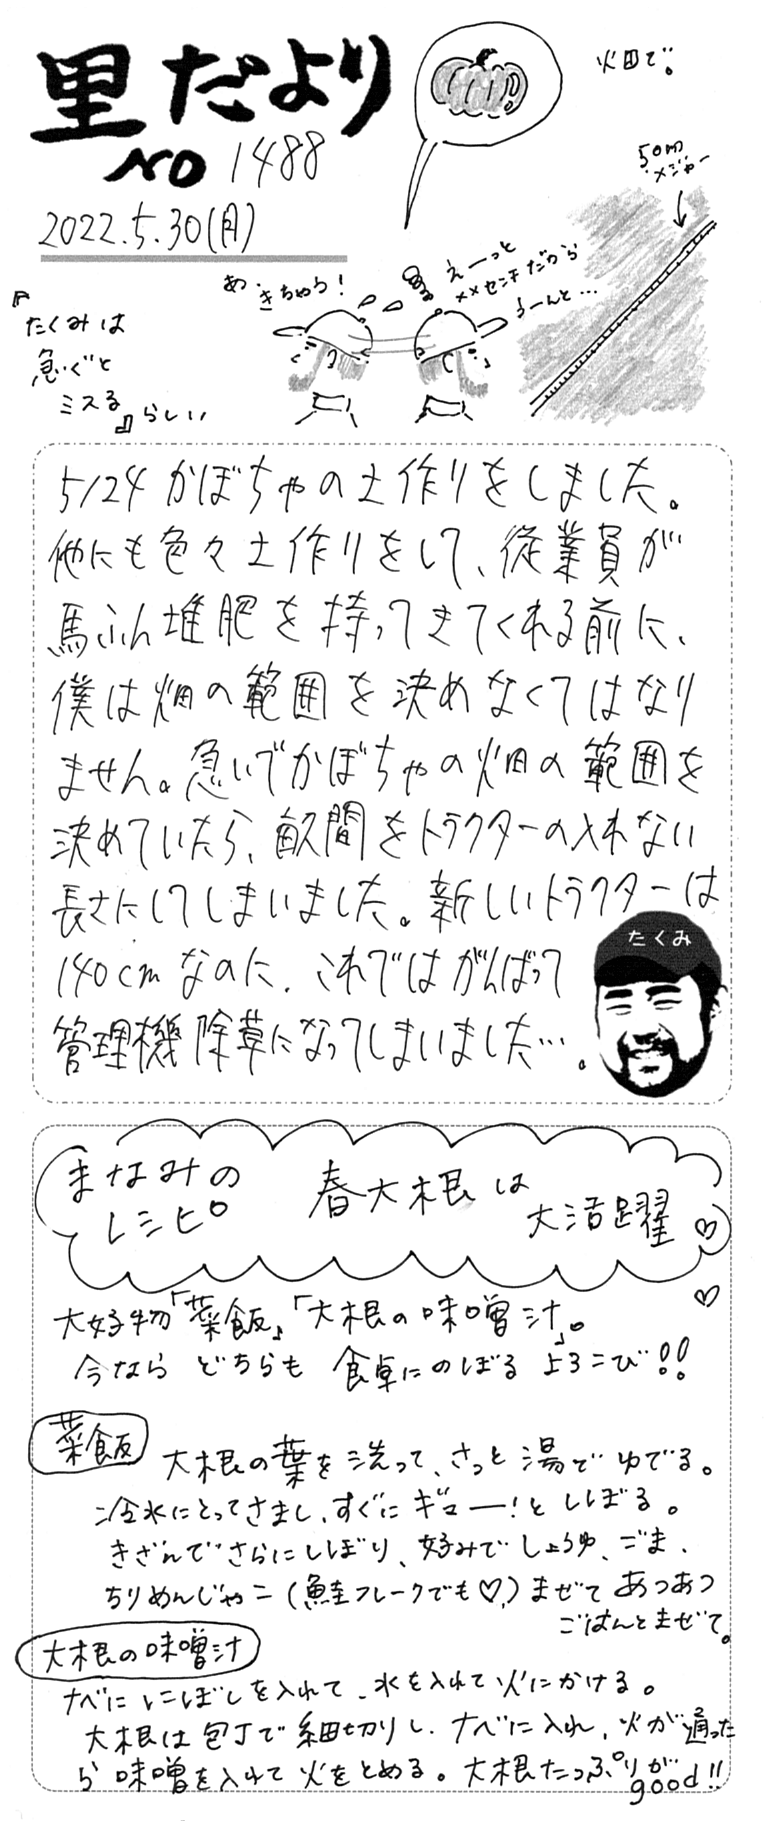 里だより
NO 1488
2022.5.30(月)
畑で。
50m
メジャー
えーっと
××センチだから
うーんと…
あ、きちゃう!
『たくみは
急ぐと
ミスる』らしい
5/24 かぼちゃの土作りをしました。
他にも色々土作りをして、従業員が
馬ふん堆肥を持ってきてくれる前に、
僕は畑の範囲を決めなくてはなり
ません。急いでかぼちゃの畑の範囲を
決めていたら、畝間をトラクターの入れない
長さにしてしまいました。新しいトラクターは
140cmなのに、これではがんばって
管理機除草になってしまいました…。
たくみ
まなみの
レシピ
春大根は
大活躍♡
♡
大好物「菜飯」「大根の味噌汁」。
今なら どちらも 食卓にのぼる よろこび!!
菜飯
大根の葉を洗って、さっと湯でゆでる。
冷水にとってさまし、すぐにギューー!としぼる。
きざんでさらにしぼり、好みでしょうゆ、ごま、
ちりめんじゃこ(鮭フレークでも♡)まぜてあつあつ
ごはんとまぜて。
大根の味噌汁
ナベににぼしを入れて、水を入れて火にかける。
大根は包丁で細切りし、ナベに入れ、火が通った
ら味噌を入れて火をとめる。大根たっぷりが
good!!